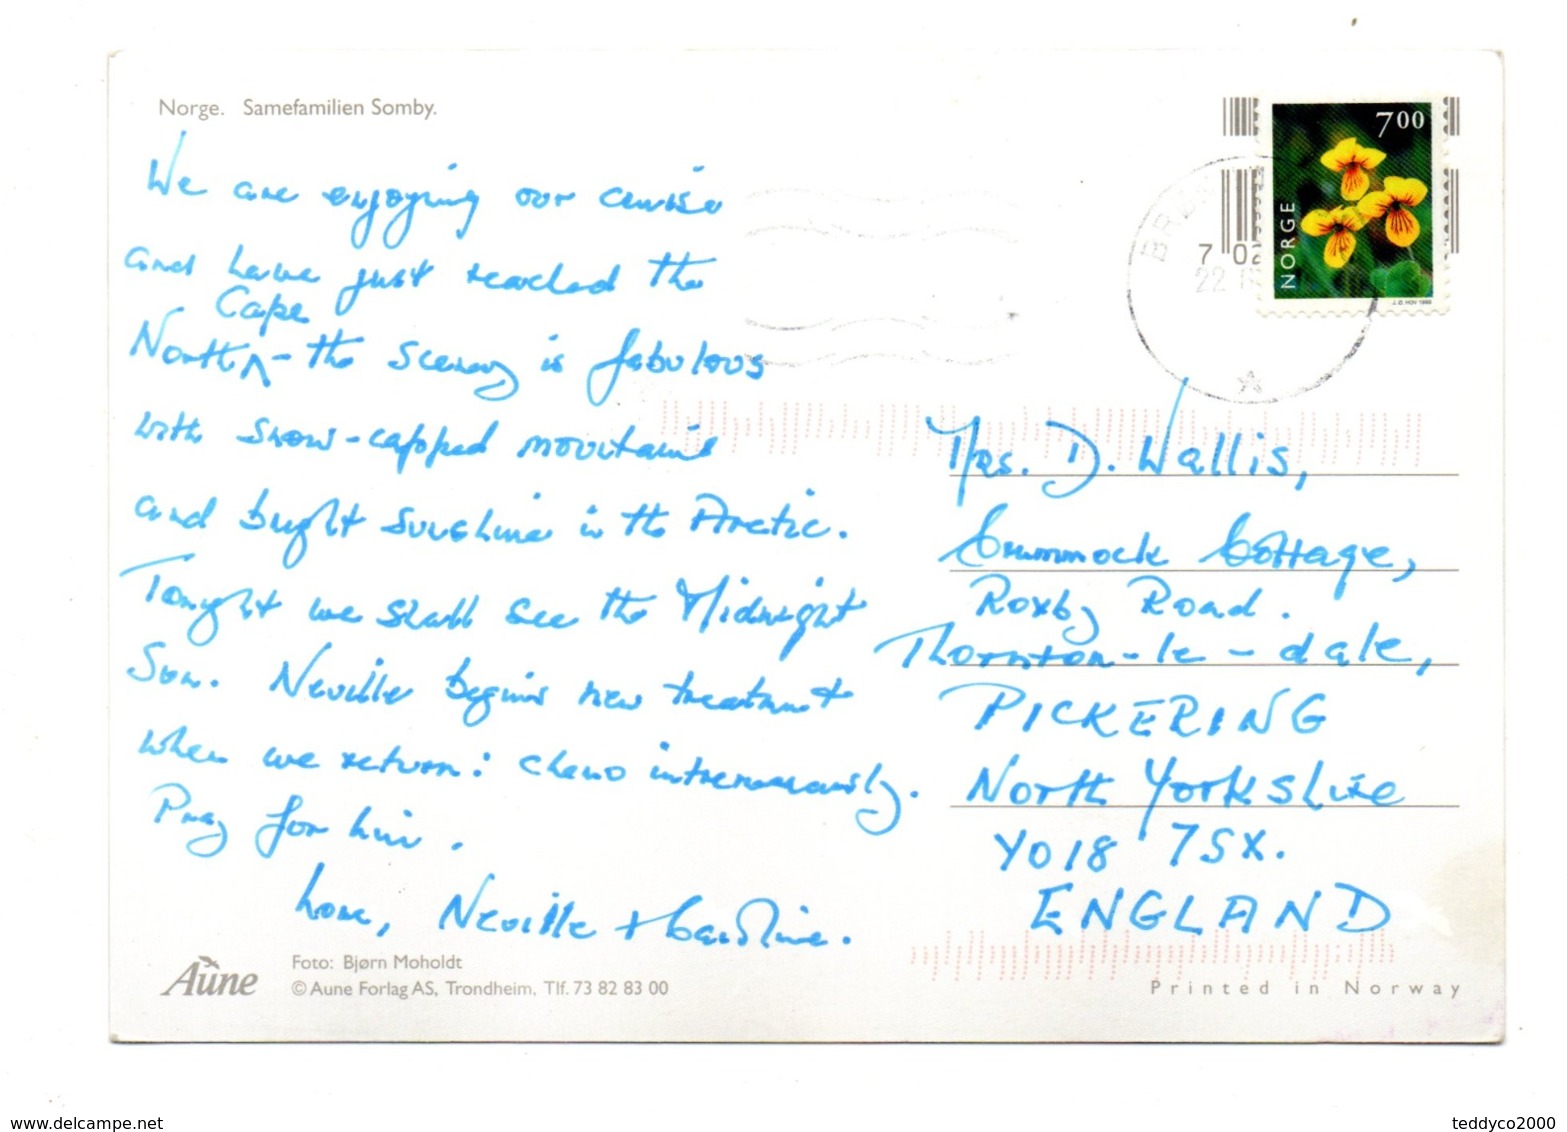 Norge. Samefamilien Somby.
We are enjoying our cruise
and have just reached the
Cape
North - the scenery is fabulous
with snow-capped mountains
and bright sunshine in the Arctic.
Tonight we shall see the Midnight
Sun. Neville begins new treatment
when we return: chemo intravenously.
Pray for him.
Love, Neville + Caroline.
Aune
Foto: Bjørn Moholdt
© Aune Forlag AS, Trondheim, Tlf. 73 82 83 00
7 00
NORGE
7 02
22
Mrs. D. Wallis,
Crummock Cottage,
Roxby Road.
Thornton-le-dale,
PICKERING
North Yorkshire
YO18 7SX.
ENGLAND
Printed in Norway
delcampe.net
teddyco2000